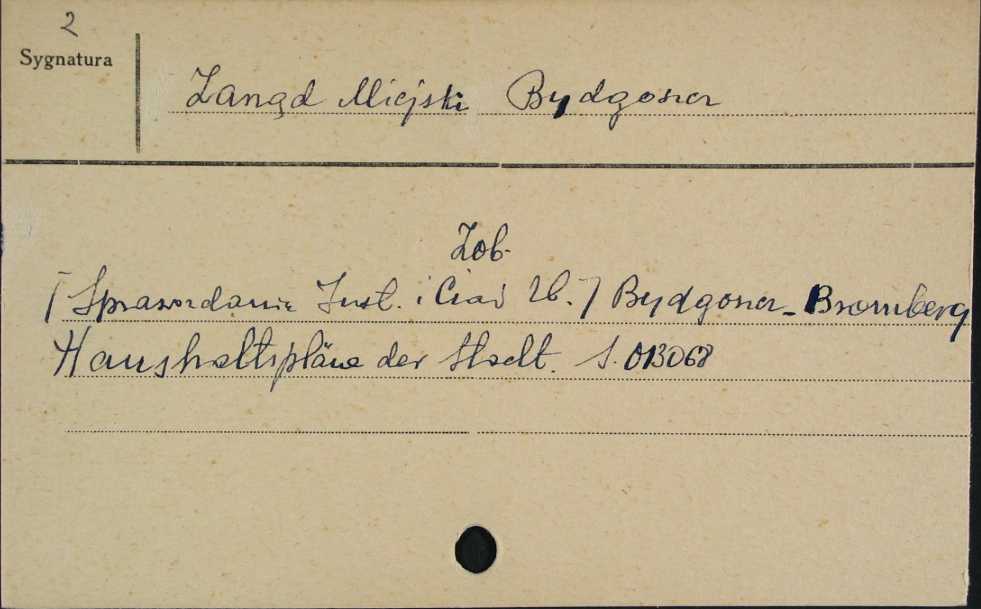 2
Sygnatura
Zarząd Miejski Bydgoszcz
Zob.
[Sprawozdanie Inst. i Ciał Ub.] Bydgoszcz - Bromberg
Haushaltspläne der Stadt. S. 013068